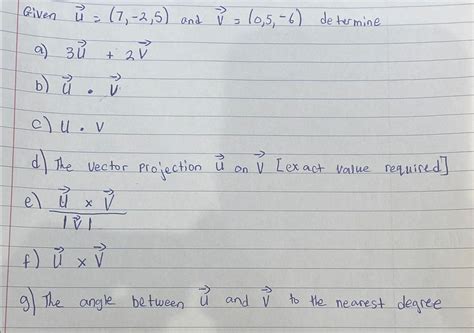 Given u⃗ = (7,-2,5) and v⃗ = (0,5,-6) determine
a) 3u⃗ + 2v⃗
b) u⃗ • v⃗
c) u • v
d) The vector projection u⃗ on v⃗ [exact value required]
e) u⃗ × v⃗
|v⃗|
f) u⃗ × v⃗
g) The angle between u⃗ and v⃗ to the nearest degree